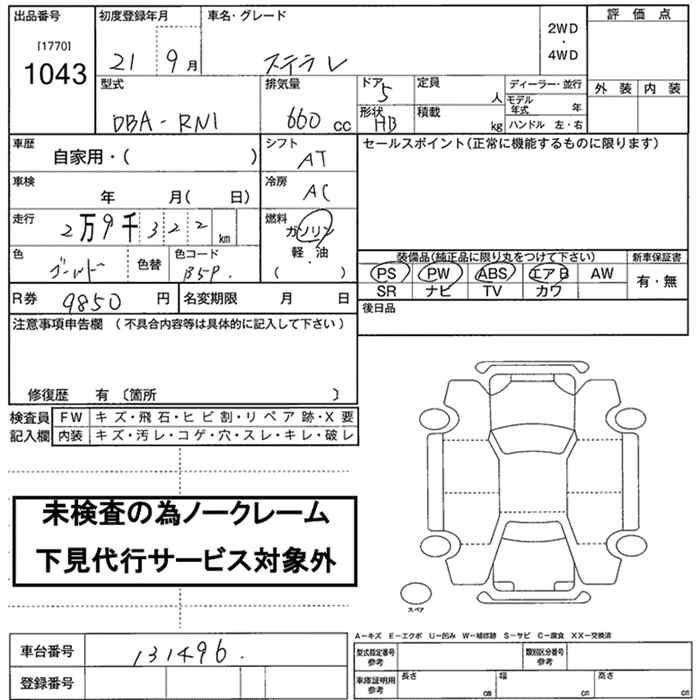 出品番号 初度登録年月 車名・グレード 評価点
[1770] 2WD
1043 21 9月 ステラ L ・
4WD
型式 排気量 ドア 5 定員 人 ディーラー・並行 外装 内装
モデル年式 年
DBA-RN1 660cc 形状 HB 積載 kg ハンドル 左・右
車歴 自家用・( ) シフト AT セールスポイント(正常に機能するものに限ります)
車検 年 月( 日) 冷房 AC
走行 2万9千322km 燃料 ガソリン
軽・油
色 ゴールド 色替 色コード B5P. ( ) 装備品(純正品に限り丸をつけて下さい) 新車保証書
PS PW ABS エアB AW 有・無
SR ナビ TV カワ
R券 9850円 名変期限 月 日 後日品
注意事項申告欄 (不具合内容等は具体的に記入して下さい)
修復歴 有 〔箇所 〕
検査員 FW キズ・飛石・ヒビ割・リペア跡・X要
記入欄 内装 キズ・汚レ・コゲ・穴・スレ・キレ・破レ
未検査の為ノークレーム
下見代行サービス対象外
スペア
A−キズ E−エクボ U−凹み W−補修跡 S−サビ C−腐食 XX−交換済
車台番号 131496. 型式指定番号 参考 類別区分番号 参考
登録番号 車庫証明用 参考 長さ cm 幅 cm 高さ cm